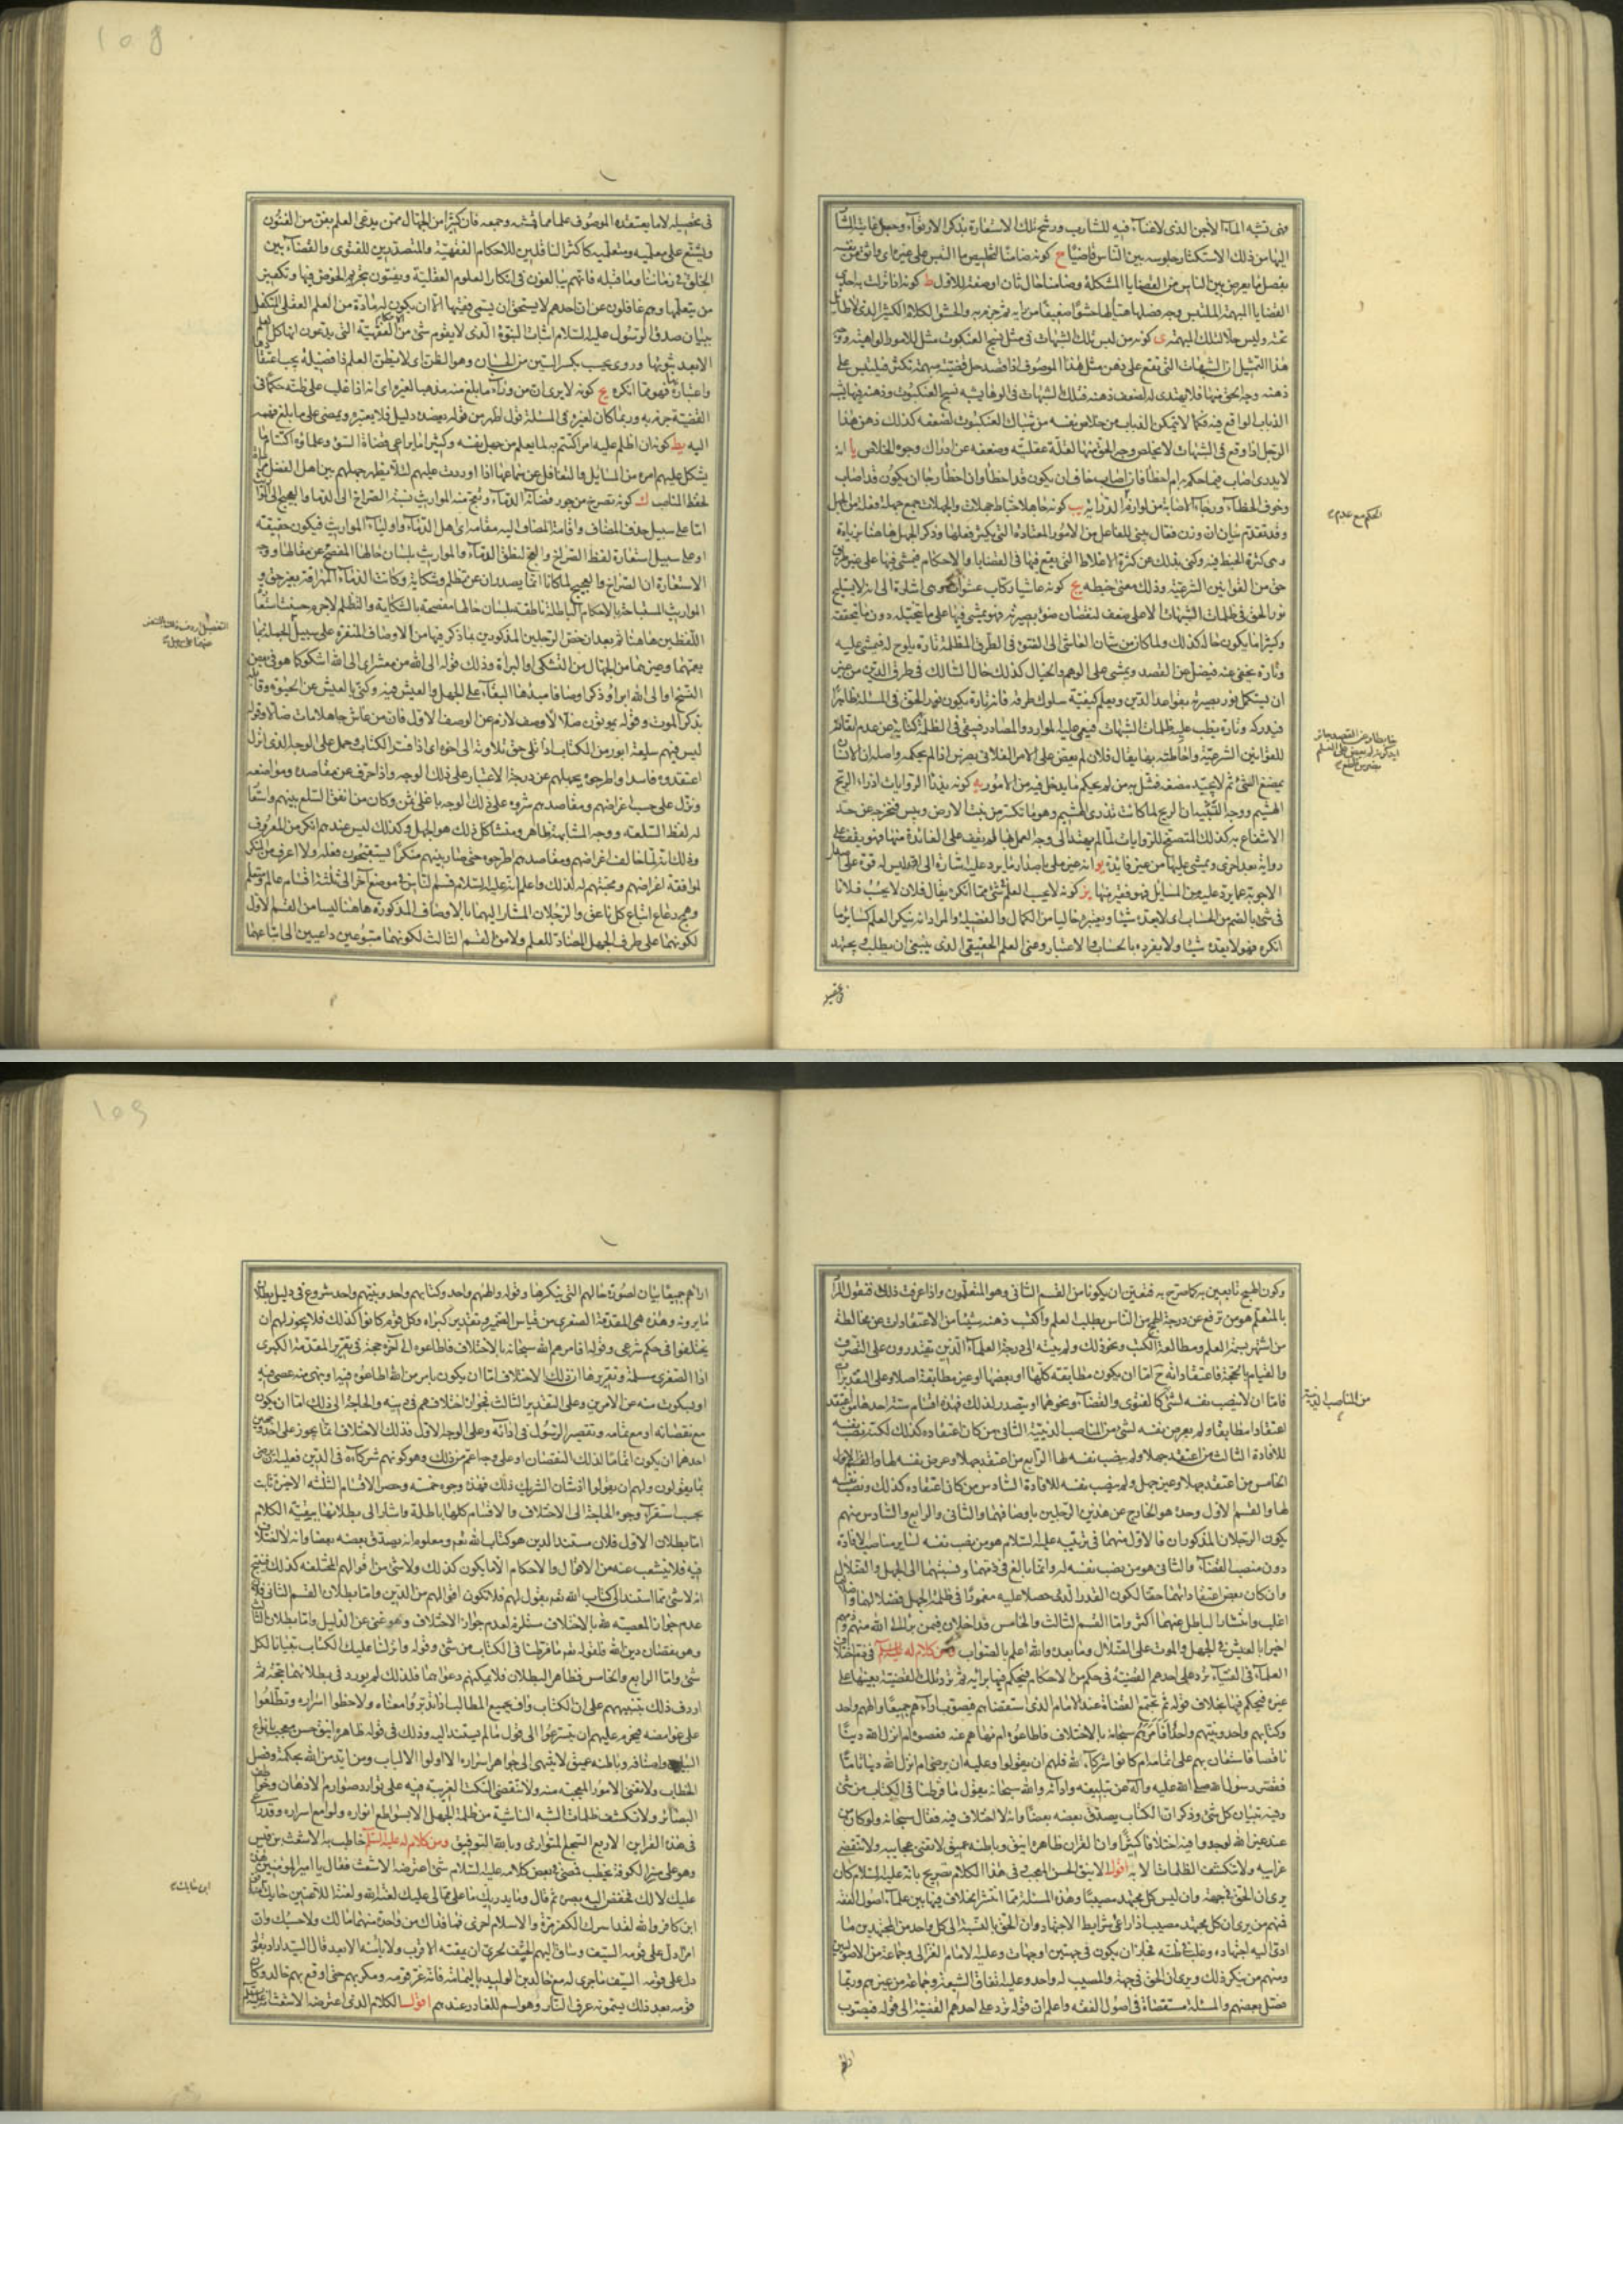 ففى تشبه الماء الآجن الذى لا غناء فيه للشارب ورشح تلك الاستعارة بذكر الارتواء وجعل غايته المشار
اليها من ذلك الاستكثار جلوسه بين الناس قاضيا ح كونه ضامنا لتخليص ما التبس على غيره اى واثق من نفسه
بفصل ما يعرض بين الناس من القضايا المشكلة وضامنا حال ثان او صفة للاول ط كونه اذا نزلت به احدى
القضايا المبهمة الملتبس وجه فصلها هيأ لها حشوا ضعيفا من رأيه ثم جزم به والحشو الكلام الكثير الذى لا طائل
تحته وليس حلا لتلك المبهمة ى كونه من لبس تلك الشبهات فى مثل نسج العنكبوت مثل للامور الواهية ووجه
هذا التمثيل ان الشبهات التى تقع على ذهن مثل هذا الموصوف اذا قصد حل قضية مبهمة تكثر فيلتبس على
ذهنه وجه الحق منها فلا يهتدى له لضعف ذهنه فتلك الشبهات فى الوهاء يشبه نسج العنكبوت وذهنه فيها يشبه
الذباب الواقع فيه فكما لا يتمكن الذباب من خلاص نفسه من شباك العنكبوت لضعفه كذلك ذهن هذا
الرجل اذا وقع فى الشبهات لا يخلص وجه الحق منها لقلة عقليته وضعفه عن ادراك وجوه الخلاص يا انه
لا يدرى اصاب فيما حكم به ام اخطأ فان اصاب خاف ان يكون قد اخطأ وان اخطأ رجا ان يكون قد اصاب
وخوف الخطاء ورجاء الاصابة من لوازم الدراية يب كونه جاهلا خباط جهلات والجهلات جمع جهلة فعلة من الجهل
وقد تقدم بيان ان وزن فعال يبنى للفاعل من الامور المعتادة التى يكثر فعلها وذكر الجهل هاهنا بزيادة
وهى كثرة الخبط فيه وكنى بذلك عن كثرة الاغلاط التى يقع فيها فى القضايا والاحكام فيمشى فيها على غير طريق
حق من القوانين الشرعية وذلك معنى خبطه يج كونه عاشيا ركاب عشوات وهى اشارة الى انه لا يستلج
نور الحق فى ظلمات الشبهات الا على ضعف لنقصان ضوء بصيرته فهو يمشى فيها على ما يتخيله دون ما يتحققه
وكثيرا ما يكون حاله كذلك ولما كان من شأن العاشى الى الضوء فى الطرق المظلمة تارة يلوح له فيمشى عليه
وتارة يخفى عنه فيضل عن القصد ويمشى على الوهم والخيال كذلك حال السالك فى طرق الدين من غير
ان يستكمل نور بصيرته بقواعد الدين ويعلم كيفية سلوك طرقه فانه تارة يكون نور الحق فى المسئلة ظاهرا
فيدركه وتارة يغلب عليه ظلمات الشبهات فيعمى عليه الموارد والمصادر فيبقى فى الظلمة كناية عن عدم اتقانه
للقوانين الشرعية واحاطته بها يقال فلان لم يعض على الامر الفلانى بضرس اذا لم يحكمه واصله ان الانسان
يمضغ الشئ ثم لا يجيد مضغه فمثل به من لم يحكم ما يدخل فيه من الامور يه كونه يذرى الروايات اذراء الريح
الهشيم ووجه التشبيه ان الريح لما كانت تذرى الهشيم وهو ما تكسر من نبت الارض ويبس فتخرجه عن حد
الانتفاع به كذلك المتصفح للروايات لما لم يهتد الى وجه العمل بها لم يقف على الفائدة منها فهو يقف على
رواية بعد اخرى ويمشى عليها من غير فائدة يو انه غير ملى باصدار ما يرد عليه اشارة الى انه ليس له قوة على اصدار
الاجوبة عما يرد عليه من المسائل فهو فقير منها يز كونه لا يحسب العلم فى شئ مما انكره يقال فلان لا يحسب فلانا
فى شئ بالضم من الحساب اى لا يعده شيئا ويعتبره خاليا من الكمال والفضيلة والمراد انه ينكر العلم كساير ما
انكره فهو لا يعده شيئا ولا يفرده بالحساب والاعتبار وعنى العلم الحقيقى الذى ينبغى ان يطلب ويجتهد
الحكم مع عدم
108
فى تحصيله لا ما يعتقده الموصوف علما مما قمشه وجمعه فان كثيرا من الجهال ممن يدعى العلم بفن من الفنون
ويشنع على معلميه ومتعلميه كاكثر الناقلين للاحكام الفقهية والمتصدرين للفتوى والقضاء بين
الخلق فى زماننا وما قبله فانهم يبالغون فى انكار العلوم العقلية ويفتون بتحريم الخوض فيها وتكفير
من يتعلمها وهم غافلون عن ان احدهم لا يستحق ان يسمى فقيها الا ان يكون له مادة من العلم العقلى المتكفل
ببيان صدق الرسول عليه السلام واثبات النبوة الذى لا يقوم شئ من الفقهية التى يدعون انها كل العلم
الا بعد ثبوتها وروى يحسب بكسر السين من الحسبان وهو الظن اى لا يظن العلم ذا فضيلة يجب اعتقادها
واعتبارها فهو مما انكره يح كونه لا يرى ان من وراء ما بلغ منه مذهبا لغيره اى انه اذا غلب على ظنه حكم فى
القضية جزم به وربما كان لغيره فى المسئلة قول اظهر من قوله يعضده دليل فلا يعتبره ويمضى على ما بلغ فهمه
اليه يط كونه ان اظلم عليه امر اكتتم به لما يعلم من جهل نفسه وكثيرا ما يراعى قضاة السوء وعلماؤه اكتتام ما
يشكل عليهم امره من المسائل والتغافل عن سماعها اذا اوردت عليهم لئلا يظهر جهلهم بين اهل الفضل مراعاة
لحفظ المناصب ك كونه تصرخ من جور قضائه الدماء وتعج منه المواريث نسبة الصراخ الى الدماء والعجيج الى المواريث
اما على سبيل حذف المضاف واقامة المضاف اليه مقامه اى اهل الدماء واولياء المواريث فيكون حقيقة
او على سبيل استعارة لفظ الصراخ والعج لنطق الدماء والمواريث بلسان حالها المفصح عن مقالها ووجه
الاستعارة ان الصراخ والعجيج لما كانا انما يصدران عن تظلم وشكاية وكانت الدماء المهراقة بغير حق و
المواريث المستباحة بالاحكام الباطلة ناطقة بلسان حالها مفصحة بالشكاية والتظلم لا جرم حسنت استعارة
اللفظين هاهنا ثم بعد ان خص الرجلين المذكورين بما ذكر فيها من الاوصاف المنفرة على سبيل الجملة بما
يعمهما وغيرهما من الجهال من التشكى والبراءة وذلك قوله الى الله من معشر اى الى الله اشكو كما هو فى بعض
النسخ او الى الله ابرأ وذكر اوصافا مبدؤها البقاء على الجهل والعيش فيه وكنى بالعيش عن الحيوة وقابله
بذكر الموت وقوله يموتون ضلالا وصف لازم عن الوصف الاول فان من عاش جاهلا مات ضالا وقوله
ليس فيهم سلعة ابور من الكتاب اذا تلى حق تلاوته الى آخره اى اذا فسر الكتاب وحمل على الوجه الذى انزل
اعتقدوه فاسدا واطرحوه بجهلهم عن درجة الاعتبار على ذلك الوجه واذا حرف عن مقاصده ومواضعه
ونزل على حسب اغراضهم ومقاصدهم شروه على ذلك الوجه باغلى ثمن وكان من انفق السلع بينهم واستعار
له لفظ السلعة ووجه المشابهة ظاهر ومنشأ كل ذلك هو الجهل وكذلك ليس عندهم انكر من المعروف
وذلك انه لما خالف اغراضهم ومقاصدهم اطرحوه حتى صار بينهم منكرا يستقبحون فعله ولا اعرف من المنكر
لموافقة اغراضهم ومحبتهم له لذلك واعلم انه عليه السلام قسم الناس فى موضع آخر الى ثلثة اقسام عالم ومتعلم
وهمج رعاع اتباع كل ناعق والرجلان المشار اليهما بالاوصاف المذكورة هاهنا ليسا من القسم الاول
لكونهما على طرف الجهل المضادة للعلم ولا من القسم الثالث لكونهما متبوعين داعيين الى اتباعهما
وكون الهمج تابعين كما صرح به فتعين ان يكونا من القسم الثانى وهو المتعلمون واذا عرفت ذلك فنقول المراد
بالمتعلم هو من ترفع عن درجة الهمج من الناس بطلب العلم واكتسب ذهنه شيئا من الاعتقادات عن مخالطة
من اشتهر بسمة العلم ومطالعة الكتب ونحو ذلك ولم ينته الى درجة العلماء الذين يقتدرون على التصرف
والقيام بالحجة فاعتقاداته ح اما ان يكون مطابقة كلها او بعضها او غير مطابقة اصلا وعلى التقديرات
فاما ان لا ينصب نفسه لشئ كالفتوى والقضاء ونحوهما او يتصدر لذلك فهذه اقسام ستة احدها من اعتقد
اعتقادا مطابقا ولم يعرض نفسه لشئ من المناصب الدينية الثانى من كان اعتقاده كذلك لكنه نصب نفسه
للافادة الثالث من اعتقد جهلا ولم ينصب نفسه لها الرابع من اعتقد جهلا وعرض نفسه لها
الخامس من اعتقد جهلا وغير جهل ولم ينصب نفسه للافادة السادس من كان اعتقاده كذلك ونصب نفسه
لها والقسم الاول وحده هو الخارج عن هذين الرجلين باوصافهما والثانى والرابع والسادس منهم
يكون الرجلان المذكوران فالاول منهما فى ترتيبه عليه السلام هو من نصب نفسه لساير مناصب الافادة
دون منصب القضاء والثانى هو من نصب نفسه له وانما بالغ فى ذمهما ونسبتهما الى الجهل والضلال
وان كان بعض اعتقاداتهما حقا لكون القدر الذى حصلا عليه مغمورا فى ظلمة الجهل فضلالهما
اغلب وانتشار الباطل عنهما اكثر واما القسم الثالث والخامس فداخلان فيمن برأ الى الله منهم وذمهم
اخيرا بالعيش فى الجهل والموت على الضلال وما بعده والله اعلم بالصواب ومن كلام له عليه السلام فى ذم اختلاف
العلماء فى الفتياء ترد على احدهم القضية فى حكم من الاحكام فيحكم فيها برأيه ثم ترد تلك القضية بعينها على
غيره فيحكم فيها بخلاف قوله ثم تجتمع القضاة عند الامام الذى استقضاهم فيصوب آراءهم جميعا والههم واحد
وكتابهم واحد ونبيهم واحد أفامرهم سبحانه بالاختلاف فاطاعوه ام نهاهم عنه فعصوه ام انزل الله دينا
ناقصا فاستعان بهم على اتمامه ام كانوا شركاء لله فلهم ان يقولوا وعليه ان يرضى ام انزل الله دينا تاما
فقصر رسول الله صلى الله عليه وآله عن تبليغه وادائه والله سبحانه يقول ما فرطنا فى الكتاب من شئ
وفيه تبيان كل شئ وذكر ان الكتاب يصدق بعضه بعضا وانه لا اختلاف فيه فقال سبحانه ولو كان من
عند غير الله لوجدوا فيه اختلافا كثيرا وان القرآن ظاهره انيق وباطنه عميق لا تفنى عجايبه ولا تنقضى
غرايبه ولا تكشف الظلمات الا به اقول الانيق الحسن المعجب وفى هذا الكلام تصريح بانه عليه السلام كان
يرى ان الحق فى جهة وان ليس كل مجتهد مصيبا وهذه المسئلة مما انتشر الخلاف فيها بين علماء اصول الفقه
فمنهم من يرى ان كل مجتهد مصيب اذا راعى شرايط الاجتهاد وان الحق بالنسبة الى كل واحد من المجتهدين ما
ادى اليه اجتهاده وغلب فى ظنه فجايز ان يكون فى جهتين او جهات وعليه الامام الغزالى وجماعة من الاصوليين
ومنهم من ينكر ذلك ويرى ان الحق فى جهة والمصيب له واحد وعليه اتفاق الشيعة وجماعة من غيرهم وربما
فصل بعضهم والمسئلة مستقصاة فى اصول الفقه واعلم ان قوله ترد على احدهم القضية الى قوله فيصوب
من المناصب الدينية
109
آراءهم جميعا بيان لصورة حالهم التى ينكرها وقوله والههم واحد وكتابهم واحد ونبيهم واحد شروع فى دليل بطلان
ما يرونه وهذه هى المقدمة الصغرى من قياس الضمير وتقدير كبراه وكل قوم كانوا كذلك فلا يجوز لهم ان
يختلفوا فى حكم شرعى وقوله أفامرهم الله سبحانه بالاختلاف فاطاعوه الى آخره حجة فى تقرير المقدمة الكبرى
اذا الصغرى مسلمة وتقريرها ان ذلك الاختلاف اما ان يكون بامر من الله اطاعوه فيه او بنهى منه عصوه فيه
او بسكوت منه عن الامرين وعلى التقدير الثالث فجواز اختلافهم فى دينه والحاجة الى ذلك اما ان يكون
مع نقصانه او مع تمامه وتقصير الرسول فى ادائه وعلى الوجه الاول فذلك الاختلاف انما يجوز على احد وجهين
احدهما ان يكون اتماما لذلك النقصان او على وجه اعم من ذلك وهو كونهم شركاءه فى الدين فعليه ان يرضى
بما يقولون ولهم ان يقولوا اذ شأن الشريك ذلك فهذه وجوه خمسة وحصر الاقسام الثلثة الاخيرة ثابت
بحسب استقراء وجوه الحاجة الى الاختلاف والاقسام كلها باطلة واشار الى بطلانها ببقية الكلام
اما بطلان الاول فلان مستند الدين هو كتاب الله تعم ومعلوم انه يصدق بعضه بعضا وانه لا اختلاف
فيه فلا يتشعب عنه من الاقوال والاحكام الا ما يكون كذلك ولا شئ من اقوالهم المختلفة كذلك فينتج
انه لا شئ مما استند الى كتاب الله تعم بقول لهم فلا تكون اقوالهم من الدين واما بطلان القسم الثانى فلان
عدم جواز المعصية لله بالاختلاف مستلزم لعدم جواز الاختلاف وهو غنى عن الدليل واما بطلان الثالث
وهو نقصان دين الله فلقوله تعم ما فرطنا فى الكتاب من شئ وقوله وانزلنا عليك الكتاب تبيانا لكل
شئ واما الرابع والخامس فظاهر البطلان فلا يمكنهم دعواهما فلذلك لم يورد فى بطلانهما حجة ثم
اردف ذلك بتنبيههم على ان الكتاب واف بجميع المطالب اذا تدبروا معناه ولاحظوا اسراره وتطلعوا
على غوامضه فيحرم عليهم ان يتسرعوا الى قول ما لم يستند اليه وذلك فى قوله ظاهره انيق حسن معجب بانواع
البيان واصنافه وباطنه عميق لا ينتهى الى جواهر اسراره الا اولوا الالباب ومن ايد من الله بحكمة وفصل
الخطاب ولا تفنى الامور المعجبة منه ولا تنقضى النكت الغريبة فيه على توارد صوارم الاذهان وخواطف
البصائر ولا تكشف ظلمات الشبه الناشية من ظلمة الجهل الا بسواطع انواره ولوامع اسراره وقد راعى
فى هذه القراين الاربع السجع المتوازى وبالله التوفيق ومن كلام له عليه السلام خاطب به الاشعث بن قيس
وهو على منبر الكوفة يخطب فمضى فى بعض كلامه عليه السلام شئ اعترضه الاشعث فقال يا امير المؤمنين هذه
عليك لا لك فخفض اليه بصره ثم قال وما يدريك ما على مما لى عليك لعنة الله ولعنة اللاعنين حايك بن حايك منافق
ابن كافر والله لقد اسرك الكفر مرة والاسلام اخرى فما فداك من واحدة منهما مالك ولا حسبك وان
امرأ دل على قومه السيف وساق اليهم الحتف لحرى ان يمقته الاقرب ولا يامنه الابعد قال السيد اراد بقوله
دل على قومه السيف ما جرى له مع خالد بن الوليد باليمامة فانه غر قومه ومكر بهم حتى اوقع بهم خالد وكان
قومه بعد ذلك يسمونه عرف النار وهو اسم للغادر عندهم اقول الكلام الذى اعترضه الاشعث
ابن حايك